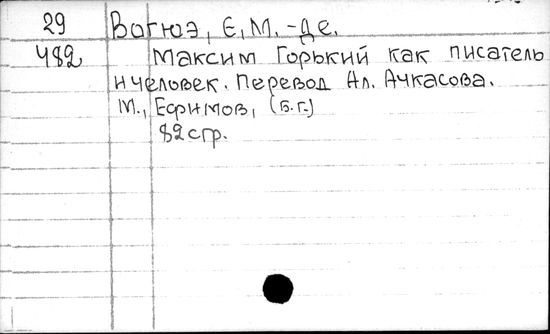 29 Вогюэ, Є, М. - де.
482 Максим Горький как писатель
и человек. Перевод Ал. Ачкасова.
М., Ефимов, (б.г.)
82 стр.